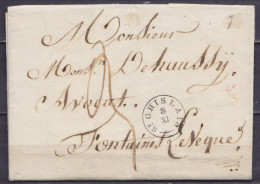 Monsieur
Mons.r Dehaussÿ
Avocat
Fontaine L'Eveque
ST GHISLAIN
8
XI